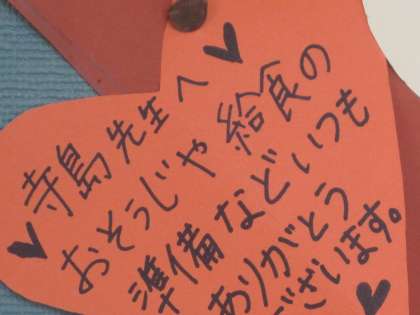 寺島先生へ
おそうじや給食の
準備などいつも
ありがとう
ございます。